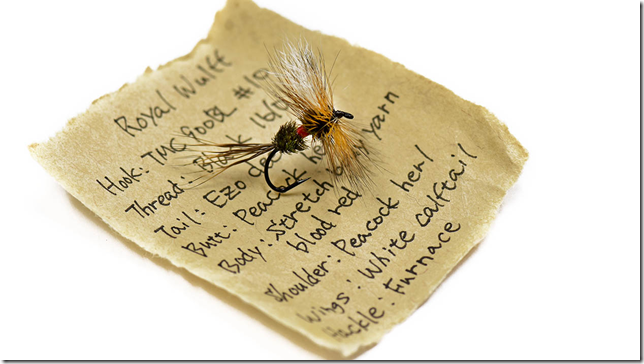 Royal Wulff
Hook: TMC 900BL #10
Thread: Black 16/0
Tail: Ezo
Butt: Peacock
Body: Stretch yarn
blood red
Shoulder: Peacock herl
Wings: White calftail
Hackle: Furnace